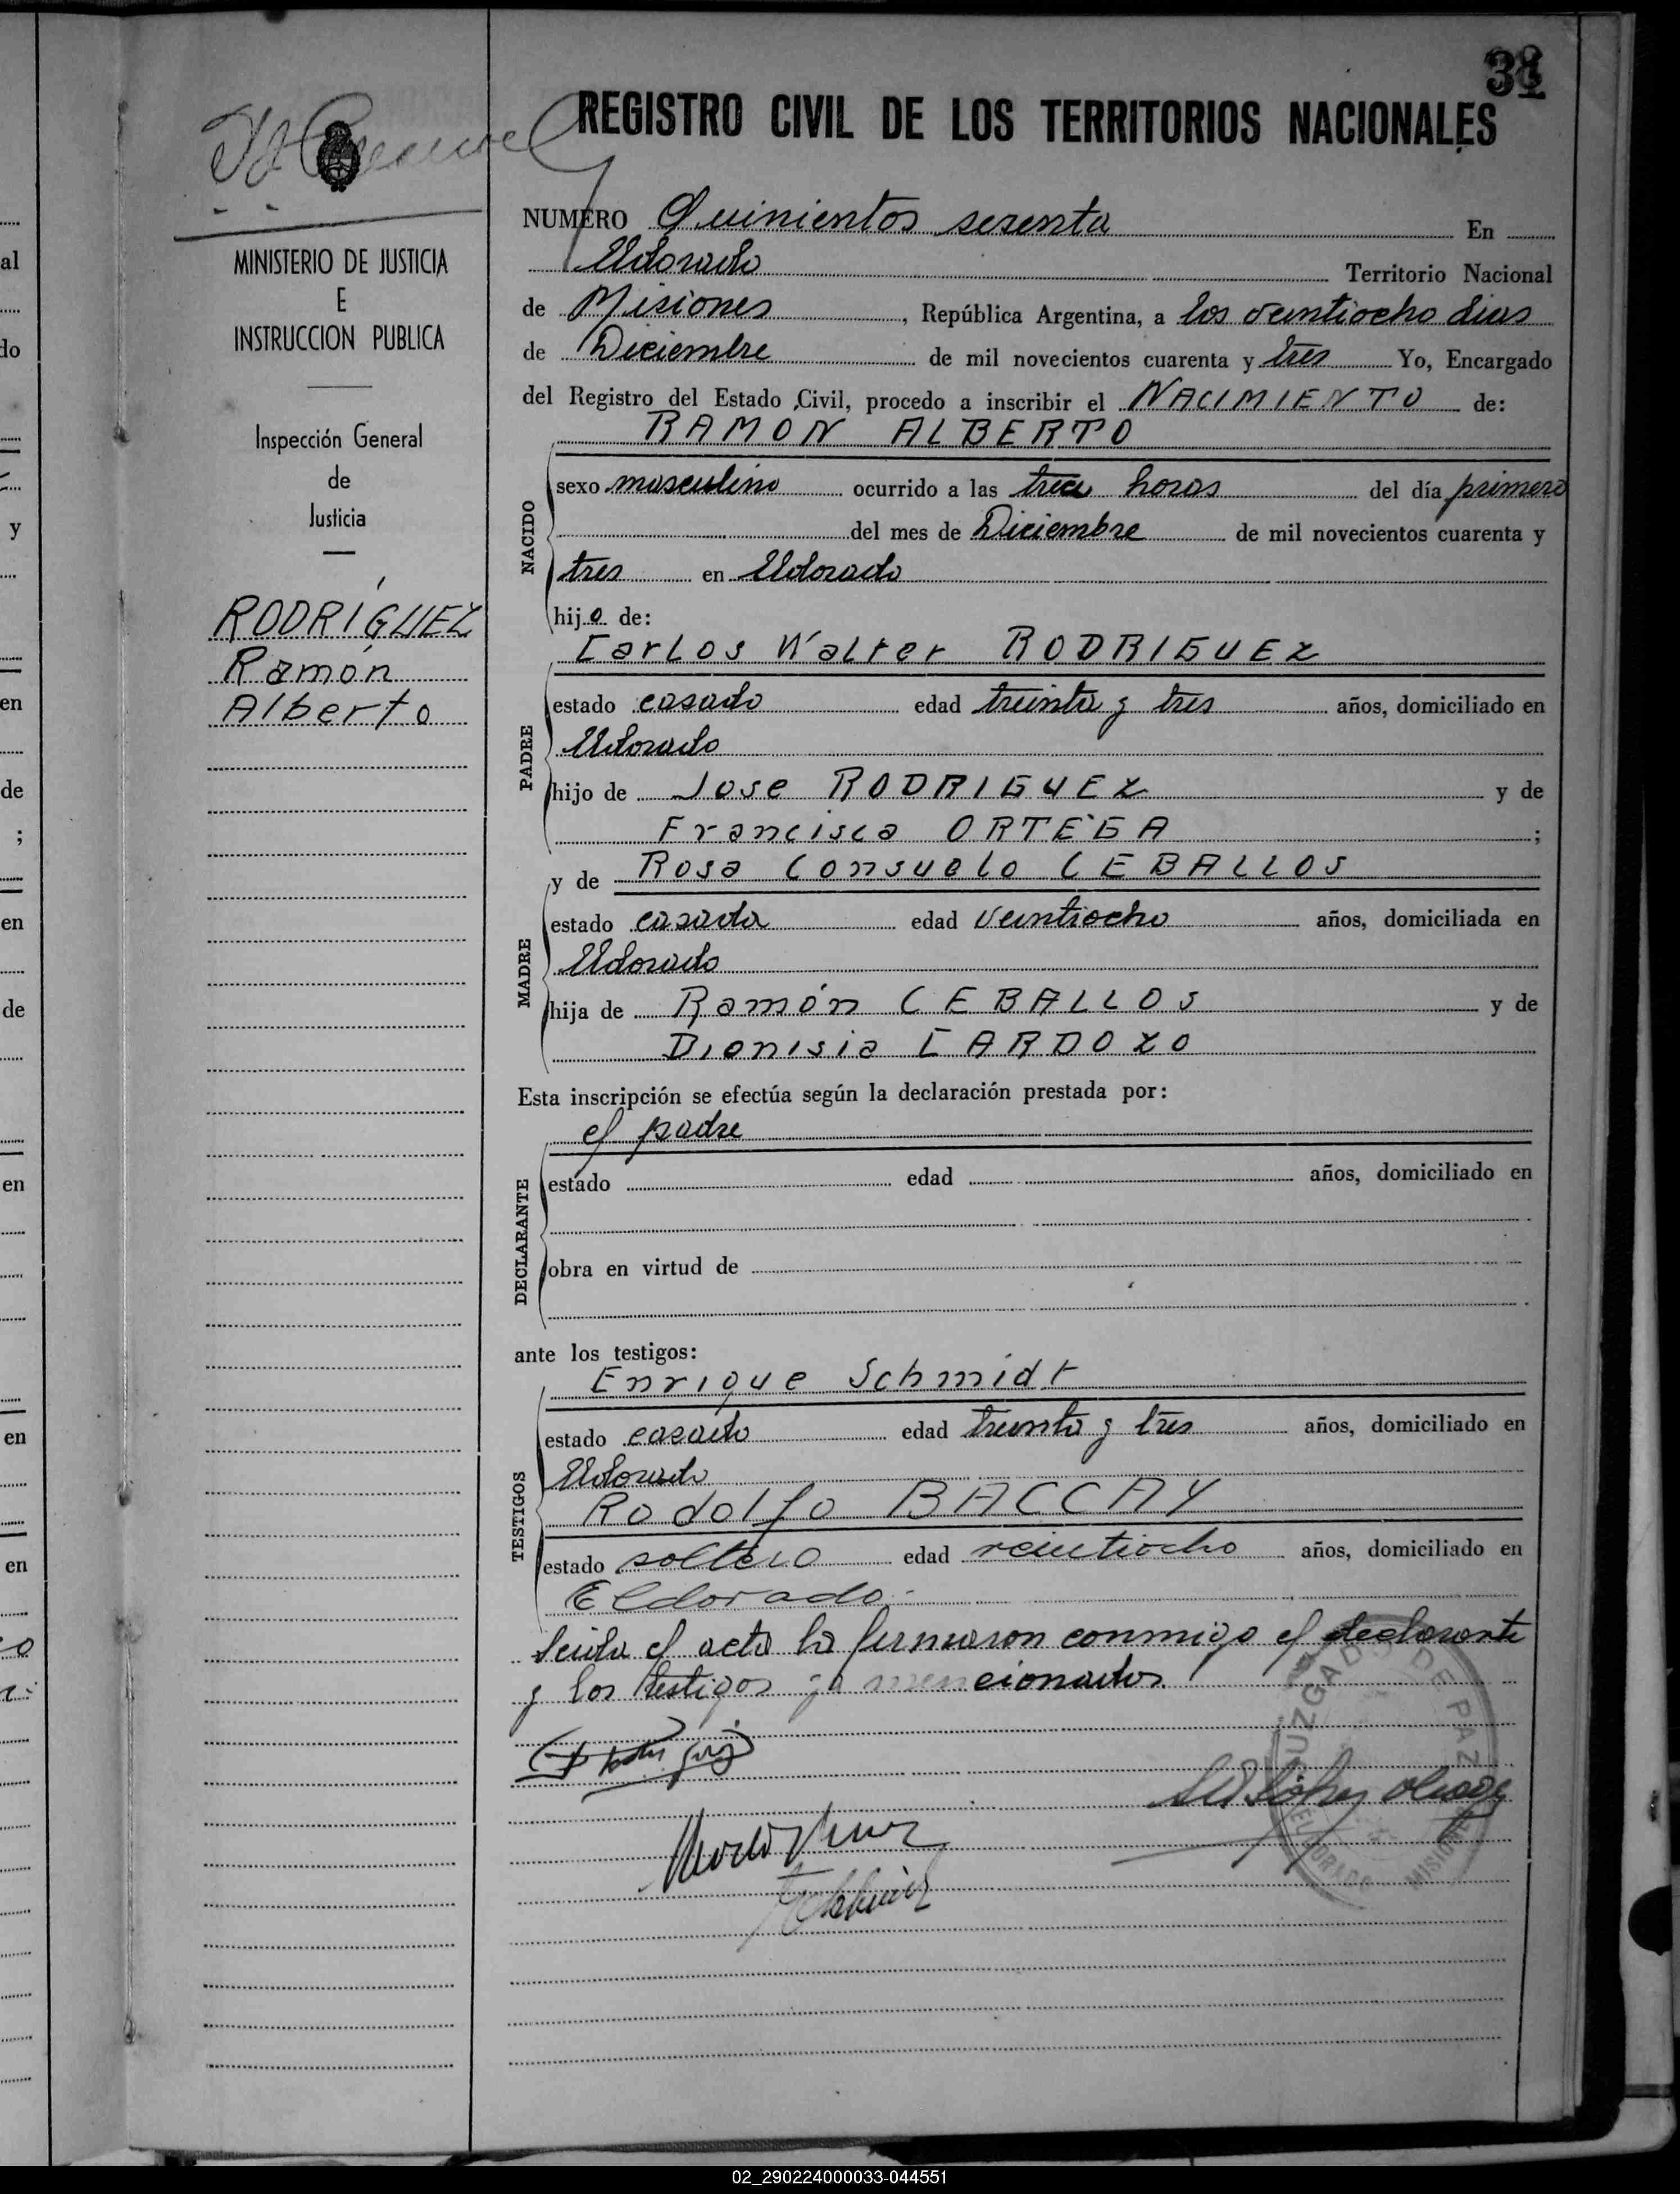 REGISTRO CIVIL DE LOS TERRITORIOS NACIONALES
MINISTERIO DE JUSTICIA
E
INSTRUCCION PUBLICA
Inspección General
de
Justicia
RODRÍGUEZ
Ramón
Alberto
NUMERO Quinientos sesenta En
Eldorado Territorio Nacional
de Misiones, República Argentina, a los veintiocho dias
de Diciembre de mil novecientos cuarenta y tres Yo, Encargado
del Registro del Estado Civil, procedo a inscribir el NACIMIENTO de:
RAMON ALBERTO
NACIDO
sexo masculino ocurrido a las trece horas del día primero
del mes de Diciembre de mil novecientos cuarenta y
tres en Eldorado
hijo de:
Carlos Walter RODRIGUEZ
PADRE
estado casado edad treinta y tres años, domiciliado en
Eldorado
hijo de Jose RODRIGUEZ y de
Francisca ORTEGA ;
y de Rosa Consuelo CEBALLOS
MADRE
estado casada edad veintiocho años, domiciliada en
Eldorado
hija de Ramón CEBALLOS y de
Dionisia CARDOZO
Esta inscripción se efectúa según la declaración prestada por:
el padre
DECLARANTE
estado edad años, domiciliado en
obra en virtud de
ante los testigos:
Enrique Schmidt
TESTIGOS
estado casado edad treinta y tres años, domiciliado en
Eldorado
Rodolfo BACCAY
estado soltero edad veintiocho años, domiciliado en
Eldorado
Leida el acta la firmaron conmigo el declarante
y los testigos ya mencionados.
JUZGADO DE PAZ
ELDORADO MISIONES
02_290224000033-044551